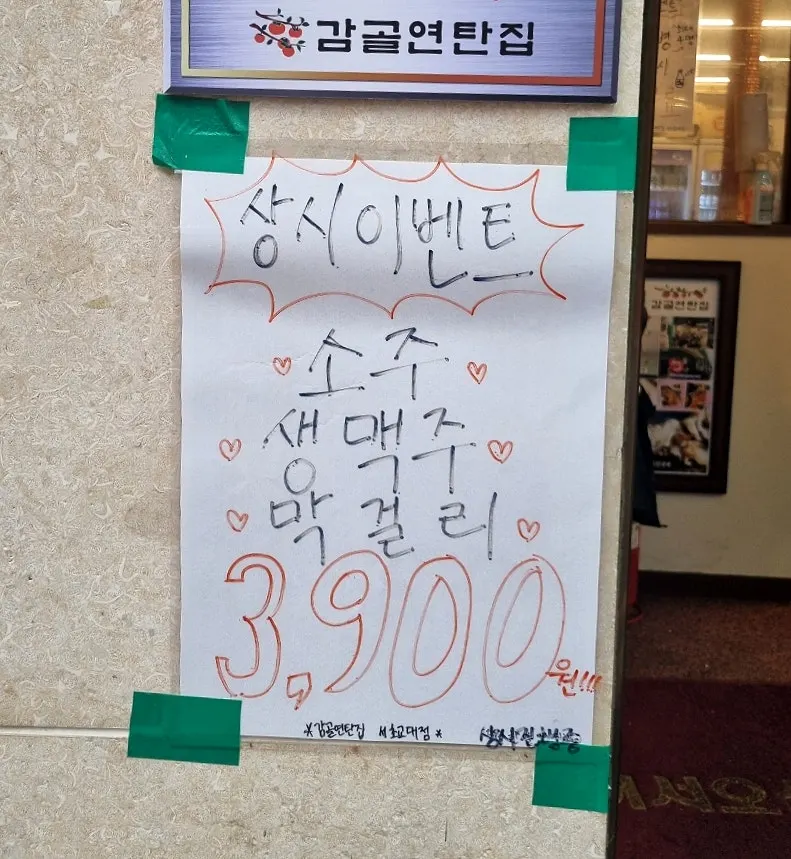 감골연탄집
상시이벤트
소주
생맥주
막걸리
3,900원!!!
*감골연탄집 서초교대점*
감골연탄집